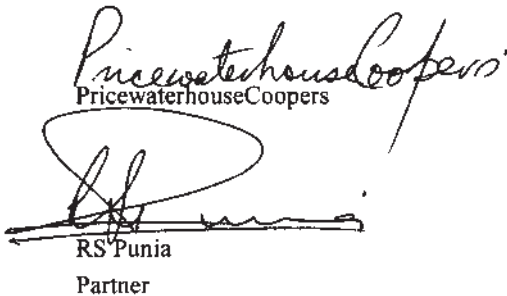 PricewaterhouseCoopers
PricewaterhouseCoopers
RS Punia
Partner